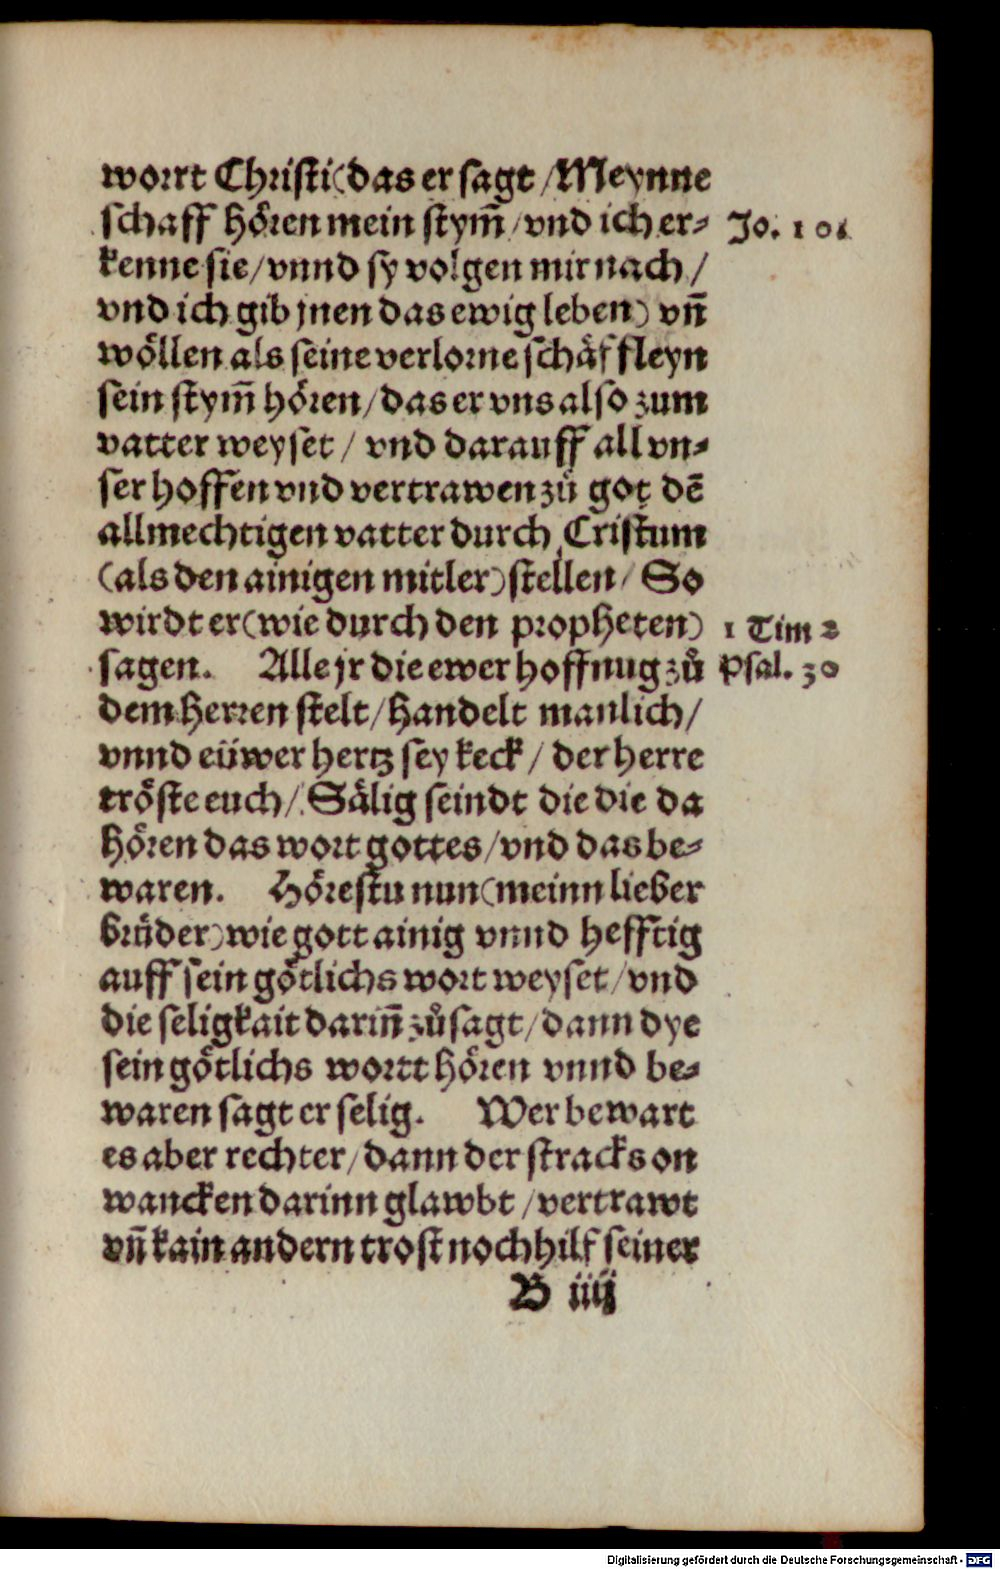 worrt Christi(das er sagt / Meynne
schaff hören mein stym̄ / vnd ich er⸗ Jo. 10.
kenne sie / vnnd sy volgen mir nach /
vnd ich gib jnen das ewig leben) vn̄
wöllen als seine verlorne schäffleyn
sein stym̄ hören / das er vns also zum
vatter weyset / vnd darauff all vn⸗
ser hoffen vnd vertrawen zů got dē
allmechtigen vatter durch Cristum
(als den ainigen mitler) stellen / So
wirdt er (wie durch den propheten) 1 Tim 2
sagen. Alle jr die ewer hoffnug zů Psal. 30
dem herren stelt / handelt manlich /
vnnd eüwer hertz sey keck / der herre
tröste euch / Sälig seindt die die da
hören das wort gottes / vnd das be⸗
waren. Hörestu nun (meinn lieber
brůder) wie gott ainig vnnd hefftig
auff sein götlichs wort weyset / vnd
die seligkait darin̄ zůsagt / dann dye
sein götlichs wortt hören vnnd be⸗
waren sagt er selig. Wer bewart
es aber rechter / dann der stracks on
wancken darinn glawbt / vertrawt
vn̄ kain andern trost noch hilf seiner
B iiij
Digitalisierung gefördert durch die Deutsche Forschungsgemeinschaft - DFG